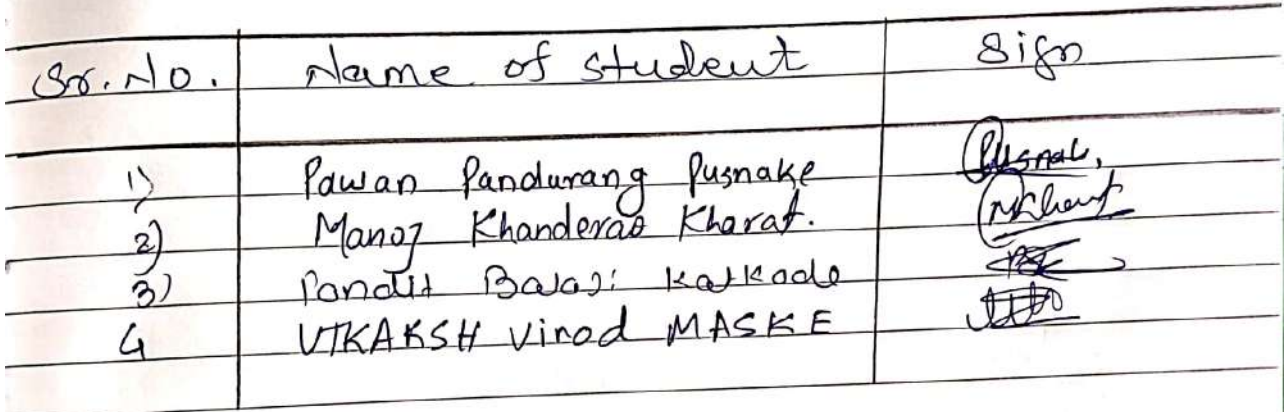 Sr. No. Name of student Sign
1) Pawan Pandurang Pusnake Pusnak.
2) Manoj Khanderao Kharat. MKharat
3) Pandit Balaji Katkade
4 UTKAKSH Vinod MASKE